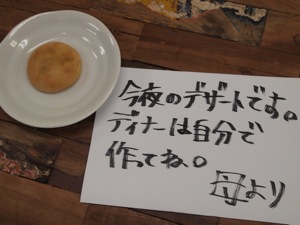 今夜のデザートです。
ディナーは自分で
作ってね。
母より